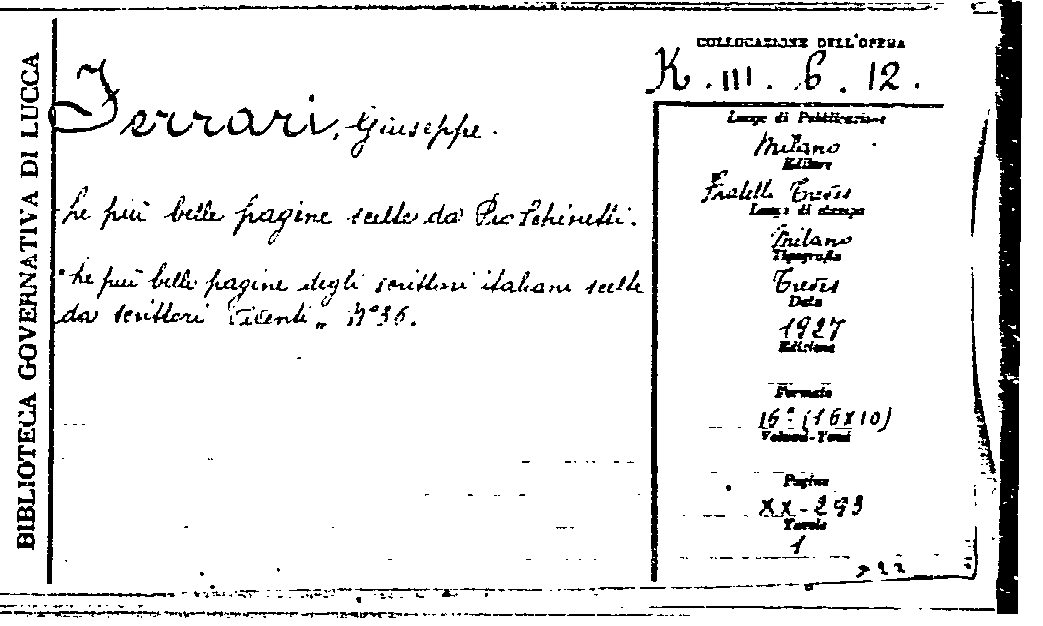 BIBLIOTECA GOVERNATIVA DI LUCCA
Ferrari, Giuseppe.
Le più belle pagine scelte da Pio Schinetti.
"Le più belle pagine degli scrittori italiani scelte
da scrittori viventi" N° 36.
COLLOCAZIONE DELL'OPERA
K. III. 6. 12.
Luogo di Pubblicazione
Milano
Editore
Fratelli Treves
Luogo di stampa
Milano
Tipografia
Treves
Data
1927
Edizione
Formato
16° (16x10)
Volumi-Tomi
Pagine
XX-293
Tavole
1